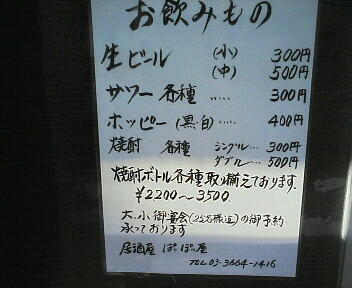 お飲みもの
生ビール (小) 300円
(中) 500円
サワー 各種 ‥‥ 300円
ホッピー (黒・白)‥‥ 400円
焼酎 各種 シングル‥ 300円
ダブル‥ 500円
焼酎ボトル各種取り揃えております.
¥2200〜3500
大.小御宴会(25名様迄)の御予約
承っております
居酒屋 ぽっぽっ屋
TEL 03-3664-1416